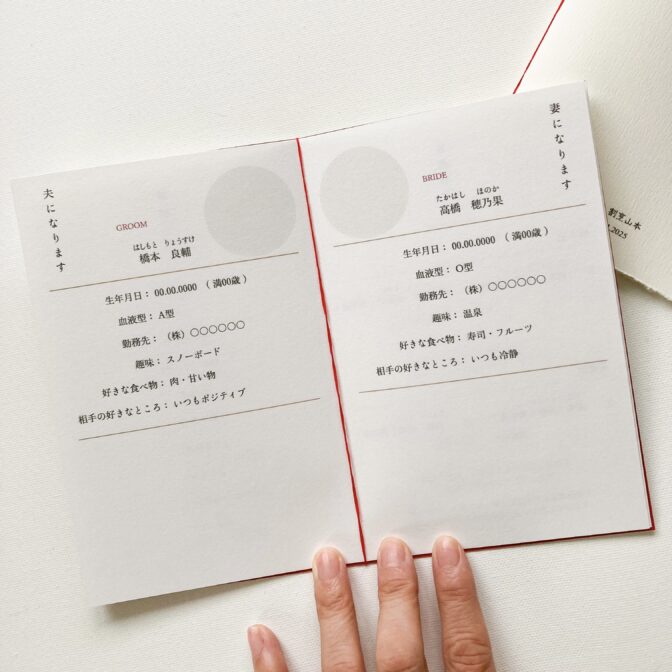 夫になります
GROOM
はしもと りょうすけ
橋本 良輔
生年月日： 00.00.0000 （ 満00歳 ）
血液型： A型
勤務先： （株）○○○○○○
趣味： スノーボード
好きな食べ物： 肉・甘い物
相手の好きなところ： いつもポジティブ
妻になります
BRIDE
たかはし ほのか
高橋 穂乃果
生年月日： 00.00.0000 （ 満00歳 ）
血液型： O型
勤務先： （株）○○○○○○
趣味： 温泉
好きな食べ物： 寿司・フルーツ
相手の好きなところ： いつも冷静
割烹山本
.2025